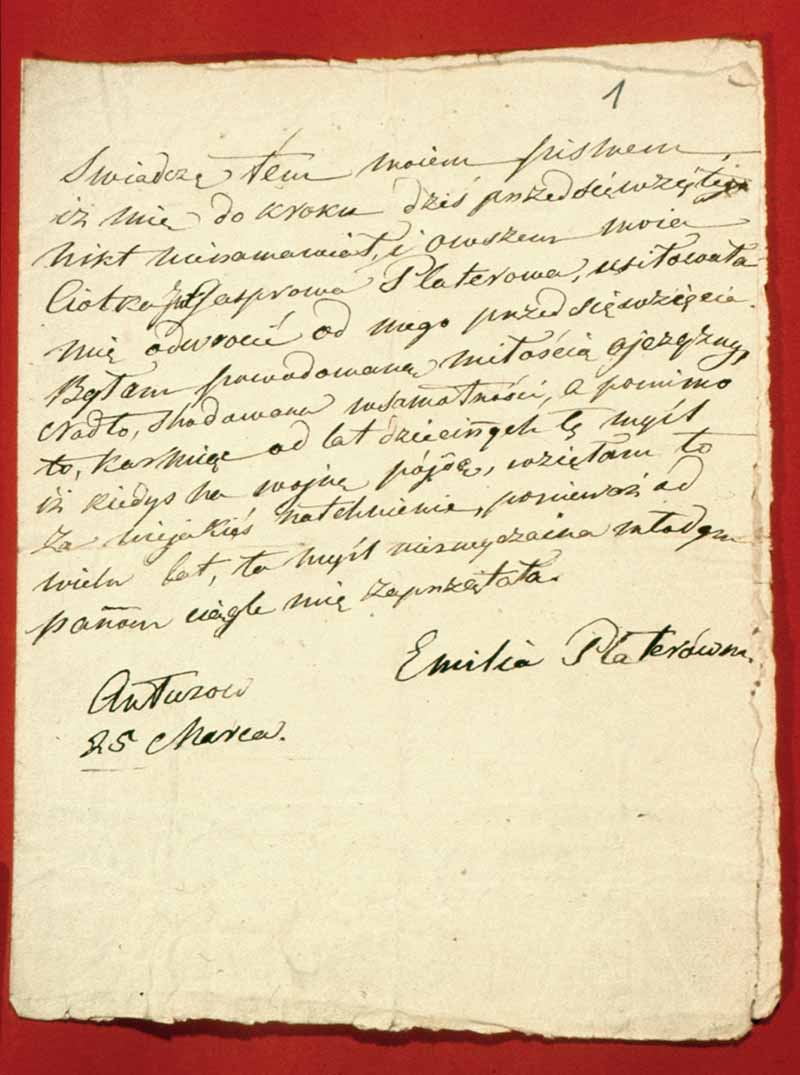 1
Swiadczę tém moiem pismem,
iż mię do kroku dziś przedsięwziętego
nikt nienamawiał, i owszem moia
Ciotka Gasprowa Platerowa, usiłowała
mię odwrocić od mego przedsięwzięcia.
Byłam powodowaną miłością ojczyzny,
Nadto, shodowana w samotności, a pomimo
to, karmiąc od lat dziecinnych tę myśl
iż kiedyś na wojnę pójdę, wzięłam to
za niejakieś natchnienie, ponieważ od
wielu lat, ta myśl niezwyczaina młodym
pañom ciągle mię zaprzątała.
Emilia Platerówna.
Antuzow
25 Marca.